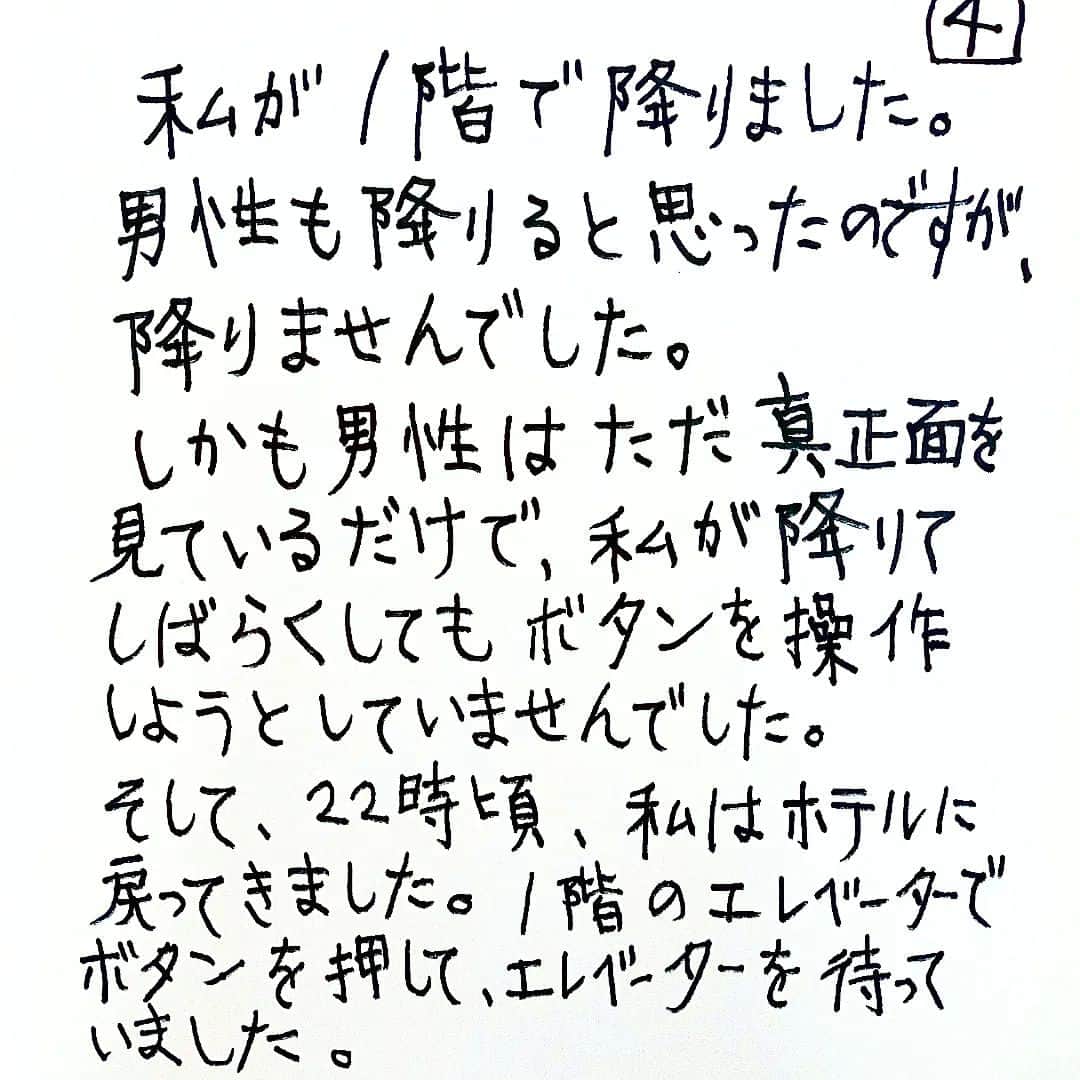 4
私が1階で降りました。
男性も降りると思ったのですが、
降りませんでした。
しかも男性はただ真正面を
見ているだけで、私が降りて
しばらくしてもボタンを操作
しようとしていませんでした。
そして、22時頃、私はホテルに
戻ってきました。1階のエレベーターで
ボタンを押して、エレベーターを待って
いました。